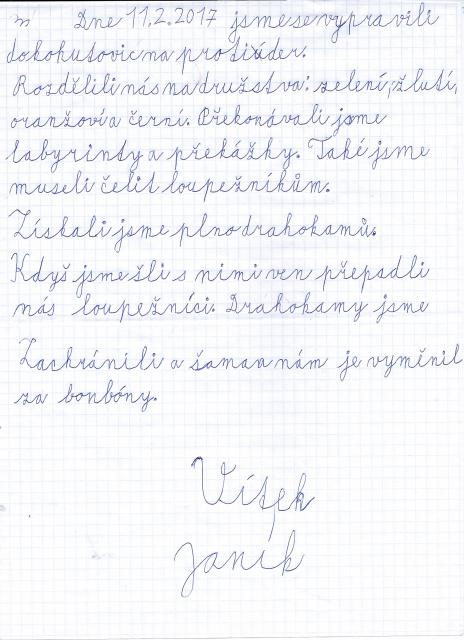 Dne 11.2.2017 jsme se vypravili
do kohutovic na protiúder.
Rozdělili nás na družstva: zelení, žlutí,
oranžoví a černí. Překonávali jsme
labyrinty a překážky. Také jsme
museli čelit loupežníkům.
Získali jsme plno drahokamů.
Kdyš jsme šli s nimi ven přepadli
nás loupežníci. Drahokamy jsme
Zachránili a šaman nám je vyměnil
za bonbóny.
Vítek
Janík